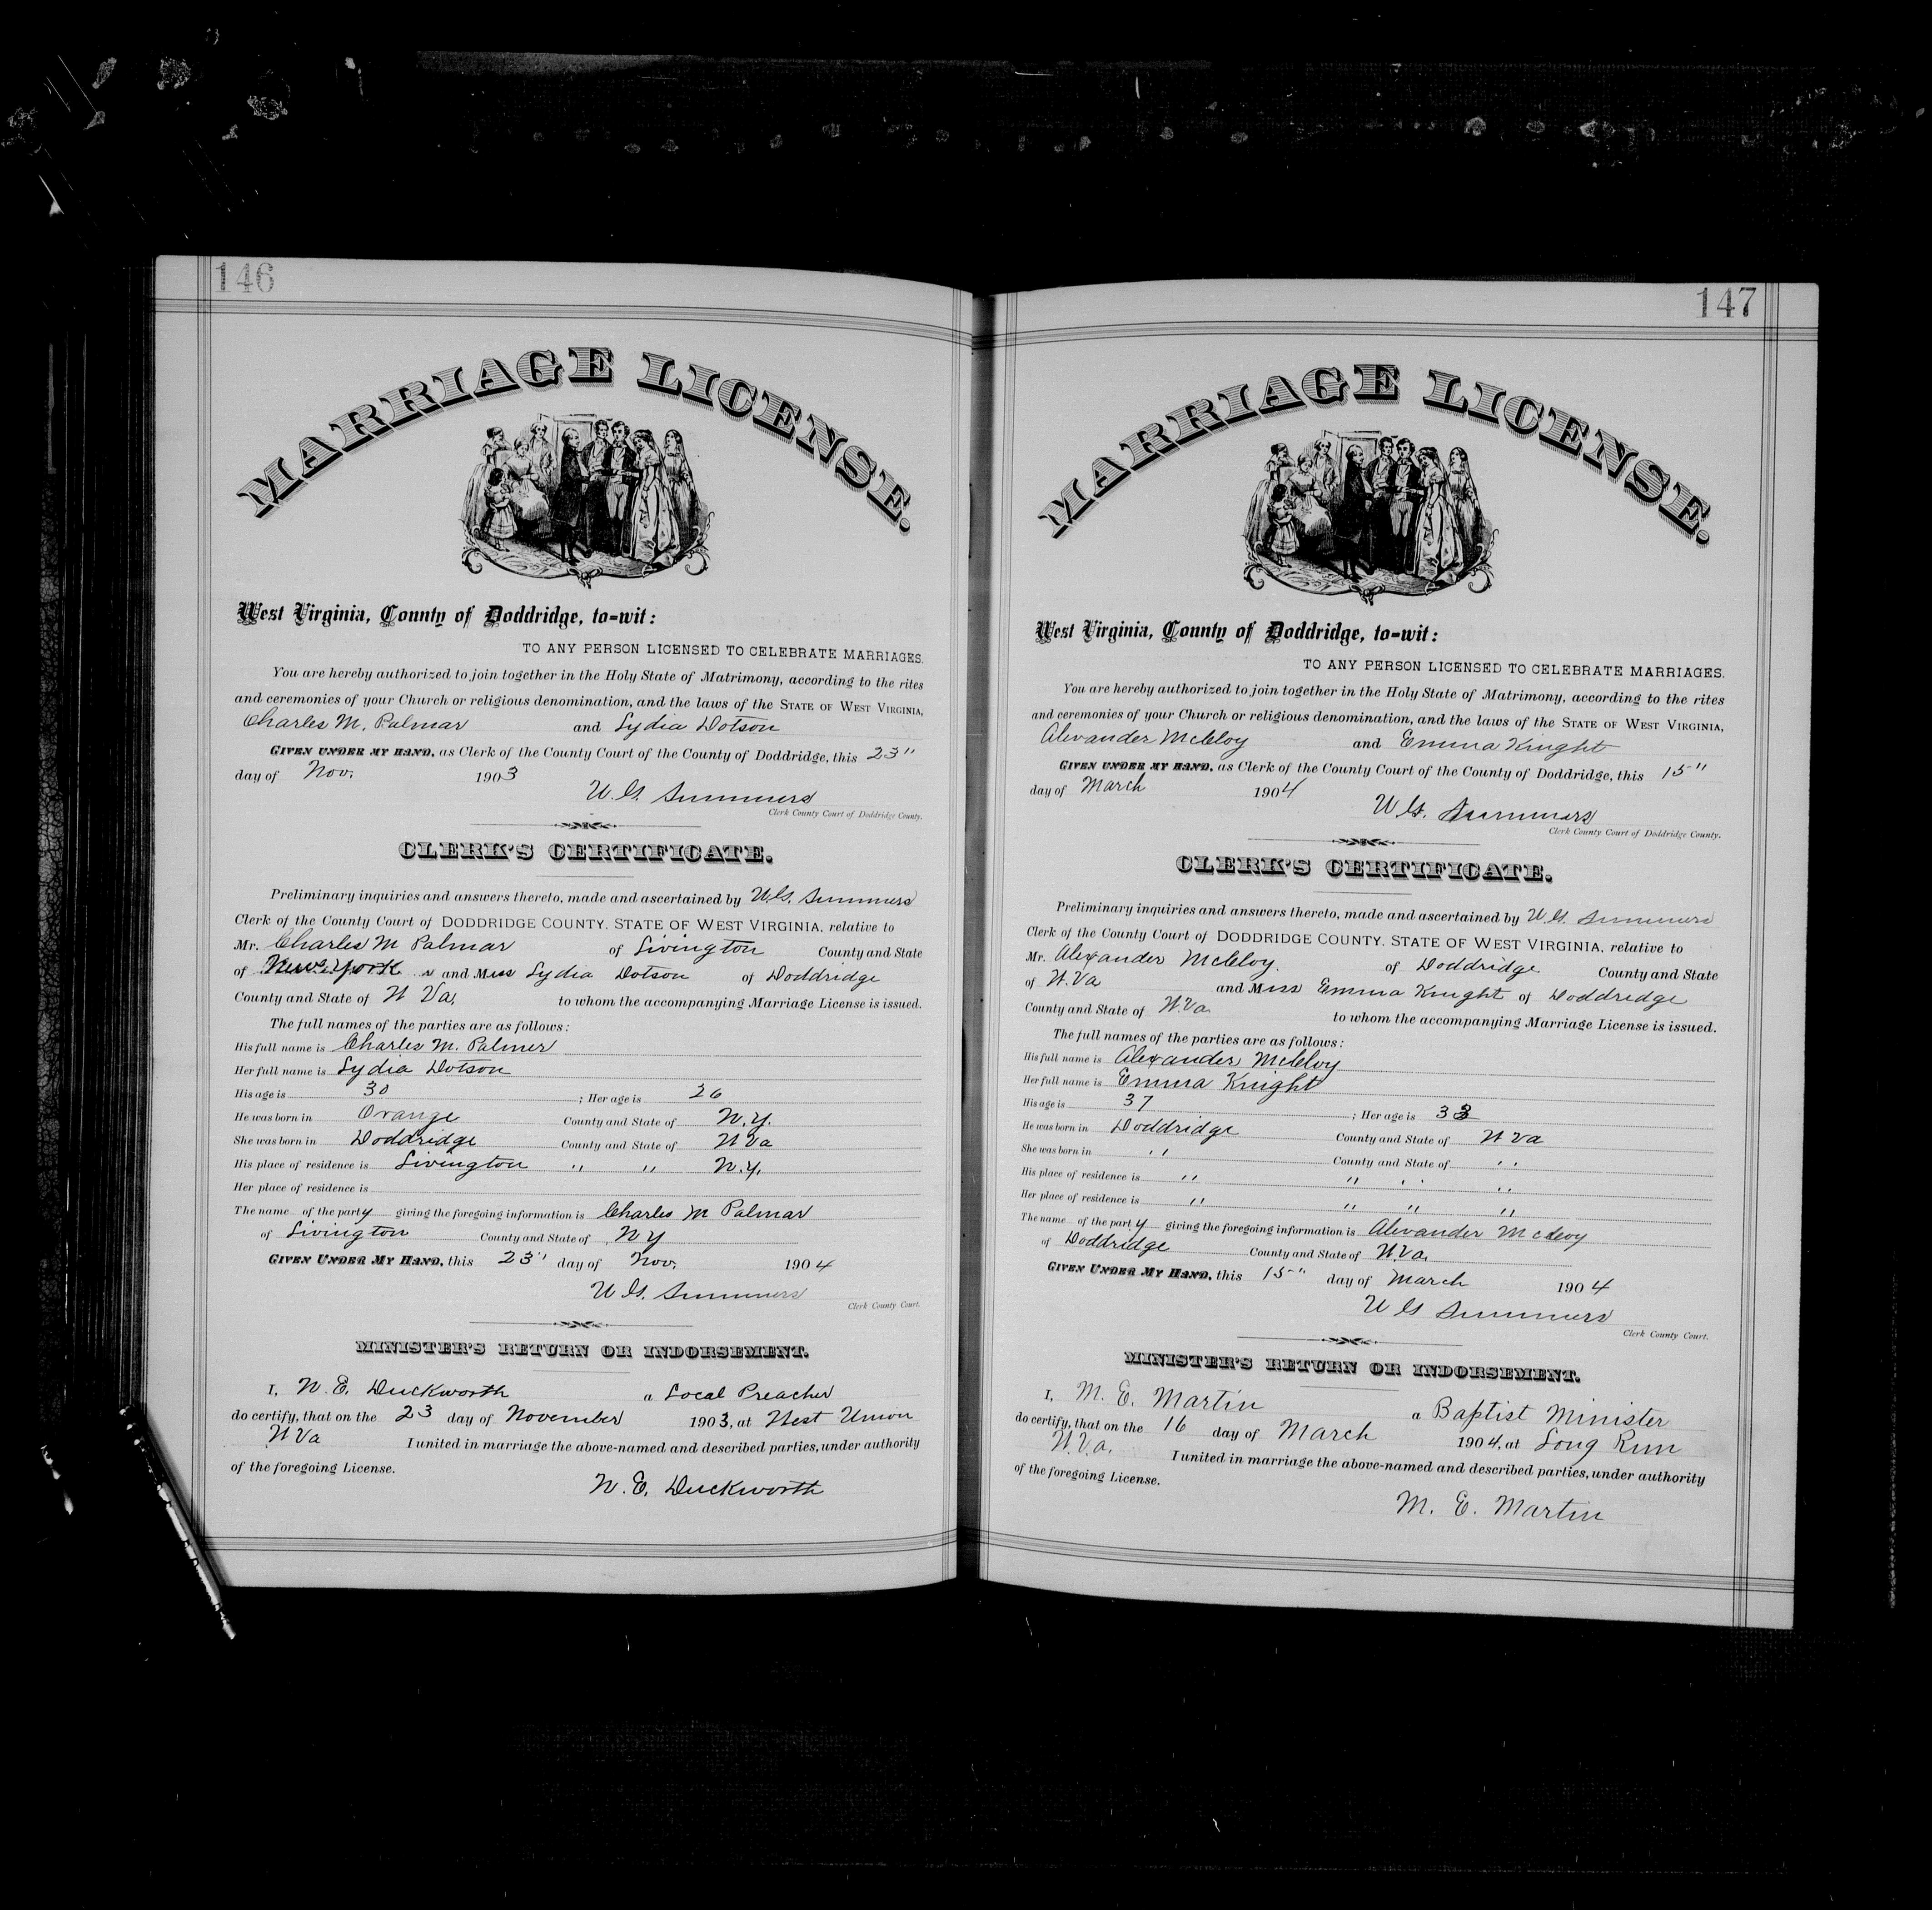 146
MARRIAGE LICENSE.
West Virginia, County of Doddridge, to=wit:
TO ANY PERSON LICENSED TO CELEBRATE MARRIAGES.
You are hereby authorized to join together in the Holy State of Matrimony, according to the rites
and ceremonies of your Church or religious denomination, and the laws of the STATE OF WEST VIRGINIA,
Charles M. Palmar and Lydia Dotson
GIVEN UNDER MY HAND, as Clerk of the County Court of the County of Doddridge, this 23"
day of Nov. 1903
W. G. Summers
Clerk County Court of Doddridge County.
CLERK'S CERTIFICATE.
Preliminary inquiries and answers thereto, made and ascertained by W.G. Summers
Clerk of the County Court of DODDRIDGE COUNTY, STATE OF WEST VIRGINIA, relative to
Mr. Charles M Palmar of Livington County and State
of New York and Miss Lydia Dotson of Doddridge
County and State of W Va. to whom the accompanying Marriage License is issued.
The full names of the parties are as follows:
His full name is Charles M. Palmer
Her full name is Lydia Dotson
His age is 30 ; Her age is 26
He was born in Orange County and State of N.Y.
She was born in Doddridge County and State of W Va
His place of residence is Livington " " N.Y.
Her place of residence is
The name of the party giving the foregoing information is Charles M Palmar
of Livington County and State of N Y
GIVEN UNDER MY HAND, this 23" day of Nov. 1904
W. G. Summers
Clerk County Court.
MINISTER'S RETURN OR INDORSEMENT.
I, W. E. Duckworth a Local Preacher
do certify, that on the 23 day of November 1903, at West Union
W Va I united in marriage the above-named and described parties, under authority
of the foregoing License.
W. E. Duckworth
147
MARRIAGE LICENSE.
West Virginia, County of Doddridge, to=wit:
TO ANY PERSON LICENSED TO CELEBRATE MARRIAGES.
You are hereby authorized to join together in the Holy State of Matrimony, according to the rites
and ceremonies of your Church or religious denomination, and the laws of the STATE OF WEST VIRGINIA,
Alexander McCloy and Emma Knight
GIVEN UNDER MY HAND, as Clerk of the County Court of the County of Doddridge, this 15"
day of March 1904
W. G. Summers
Clerk County Court of Doddridge County.
CLERK'S CERTIFICATE.
Preliminary inquiries and answers thereto, made and ascertained by W. G. Summers
Clerk of the County Court of DODDRIDGE COUNTY, STATE OF WEST VIRGINIA, relative to
Mr. Alexander McCloy. of Doddridge County and State
of W. Va and Miss Emma Knight of Doddridge
County and State of W. Va. to whom the accompanying Marriage License is issued.
The full names of the parties are as follows:
His full name is Alexander McCloy
Her full name is Emma Knight
His age is 37 ; Her age is 33
He was born in Doddridge County and State of W Va
She was born in " County and State of "
His place of residence is " " " "
Her place of residence is " " " "
The name of the party giving the foregoing information is Alexander McCloy
of Doddridge County and State of W. Va.
GIVEN UNDER MY HAND, this 15" day of March 1904
W G Summers
Clerk County Court.
MINISTER'S RETURN OR INDORSEMENT.
I, M. E. Martin a Baptist Minister
do certify, that on the 16 day of March 1904, at Long Run
W. Va. I united in marriage the above-named and described parties, under authority
of the foregoing License.
M. E. Martin